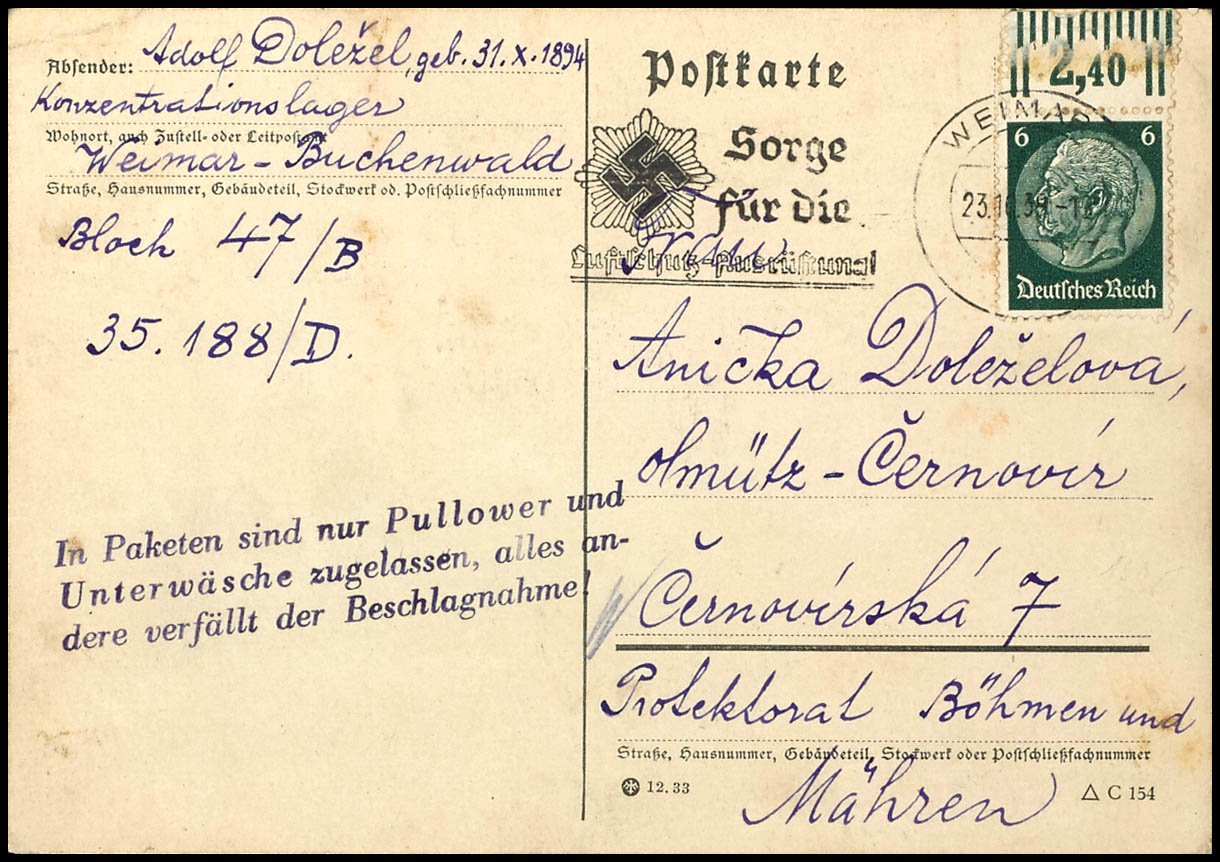 Absender: Adolf Doležel, geb. 31. X. 1894
Konzentrationslager
Wohnort, auch Zustell- oder Leitpostamt
Weimar - Buchenwald
Straße, Hausnummer, Gebäudeteil, Stockwerk od. Postschließfachnummer
Block 47/B
35.188/D.
In Paketen sind nur Pullower und
Unterwäsche zugelassen, alles an-
dere verfällt der Beschlagnahme!
Postkarte
Sorge
für die
Luftschutz-Ausrüstung!
2,40
WEIMAR
6 6
Deutsches Reich
Frau
Anička Doleželová,
Olmütz - Černovír
Černovírská 7
Protektorat Böhmen und
Straße, Hausnummer, Gebäudeteil, Stockwerk oder Postschließfachnummer
Mähren
12.33
C 154